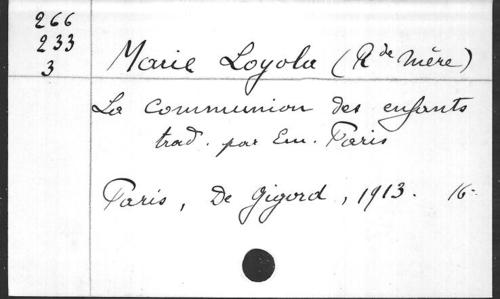 266
233
3
Marie Loyola (Rde Mère)
La communion des enfants
trad. par Em. Paris
Paris, De Gigord, 1913. 16-